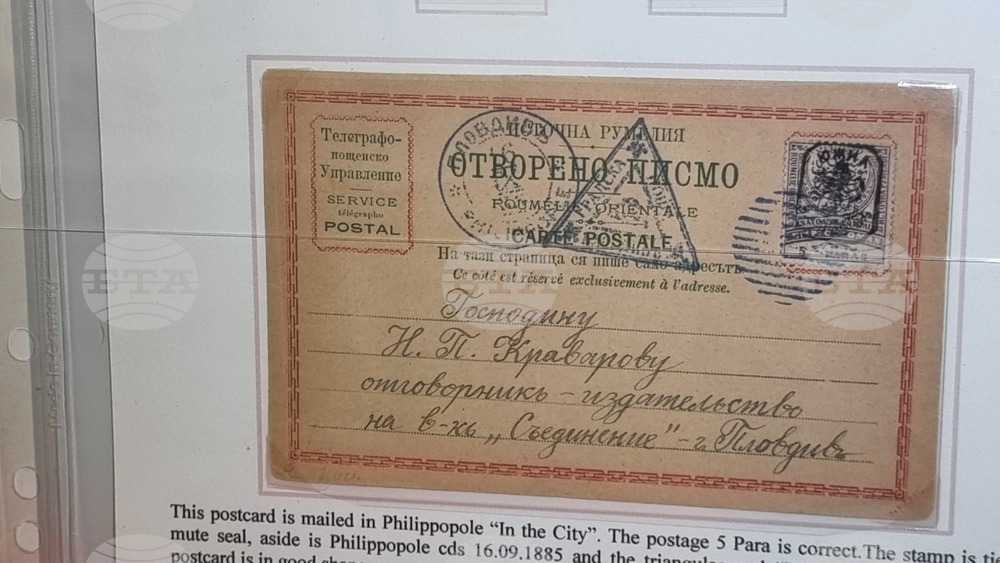 Телеграфо-
пощенско
Управление
SERVICE
télégrapho
POSTAL
ИЗТОЧНА РУМЕЛИЯ
ОТВОРЕНО ПИСМО
ROUMÉLIE ORIENTALE
CARTE POSTALE
На тази страница ся пише само адресътъ
Ce côté est réservé exclusivement à l'adresse.
ПЛОВДИВЪ
ЮЖНА
Господину
Н. П. Краварову
отговорникъ – издательство
на в-къ „Съединение" – г. Пловдивъ
БТА
БТА
БТА
This postcard is mailed in Philippopole “In the City”. The postage 5 Para is correct.The stamp is tie
mute seal, aside is Philippopole cds 16.09.1885 and the triangular
postcard is in good